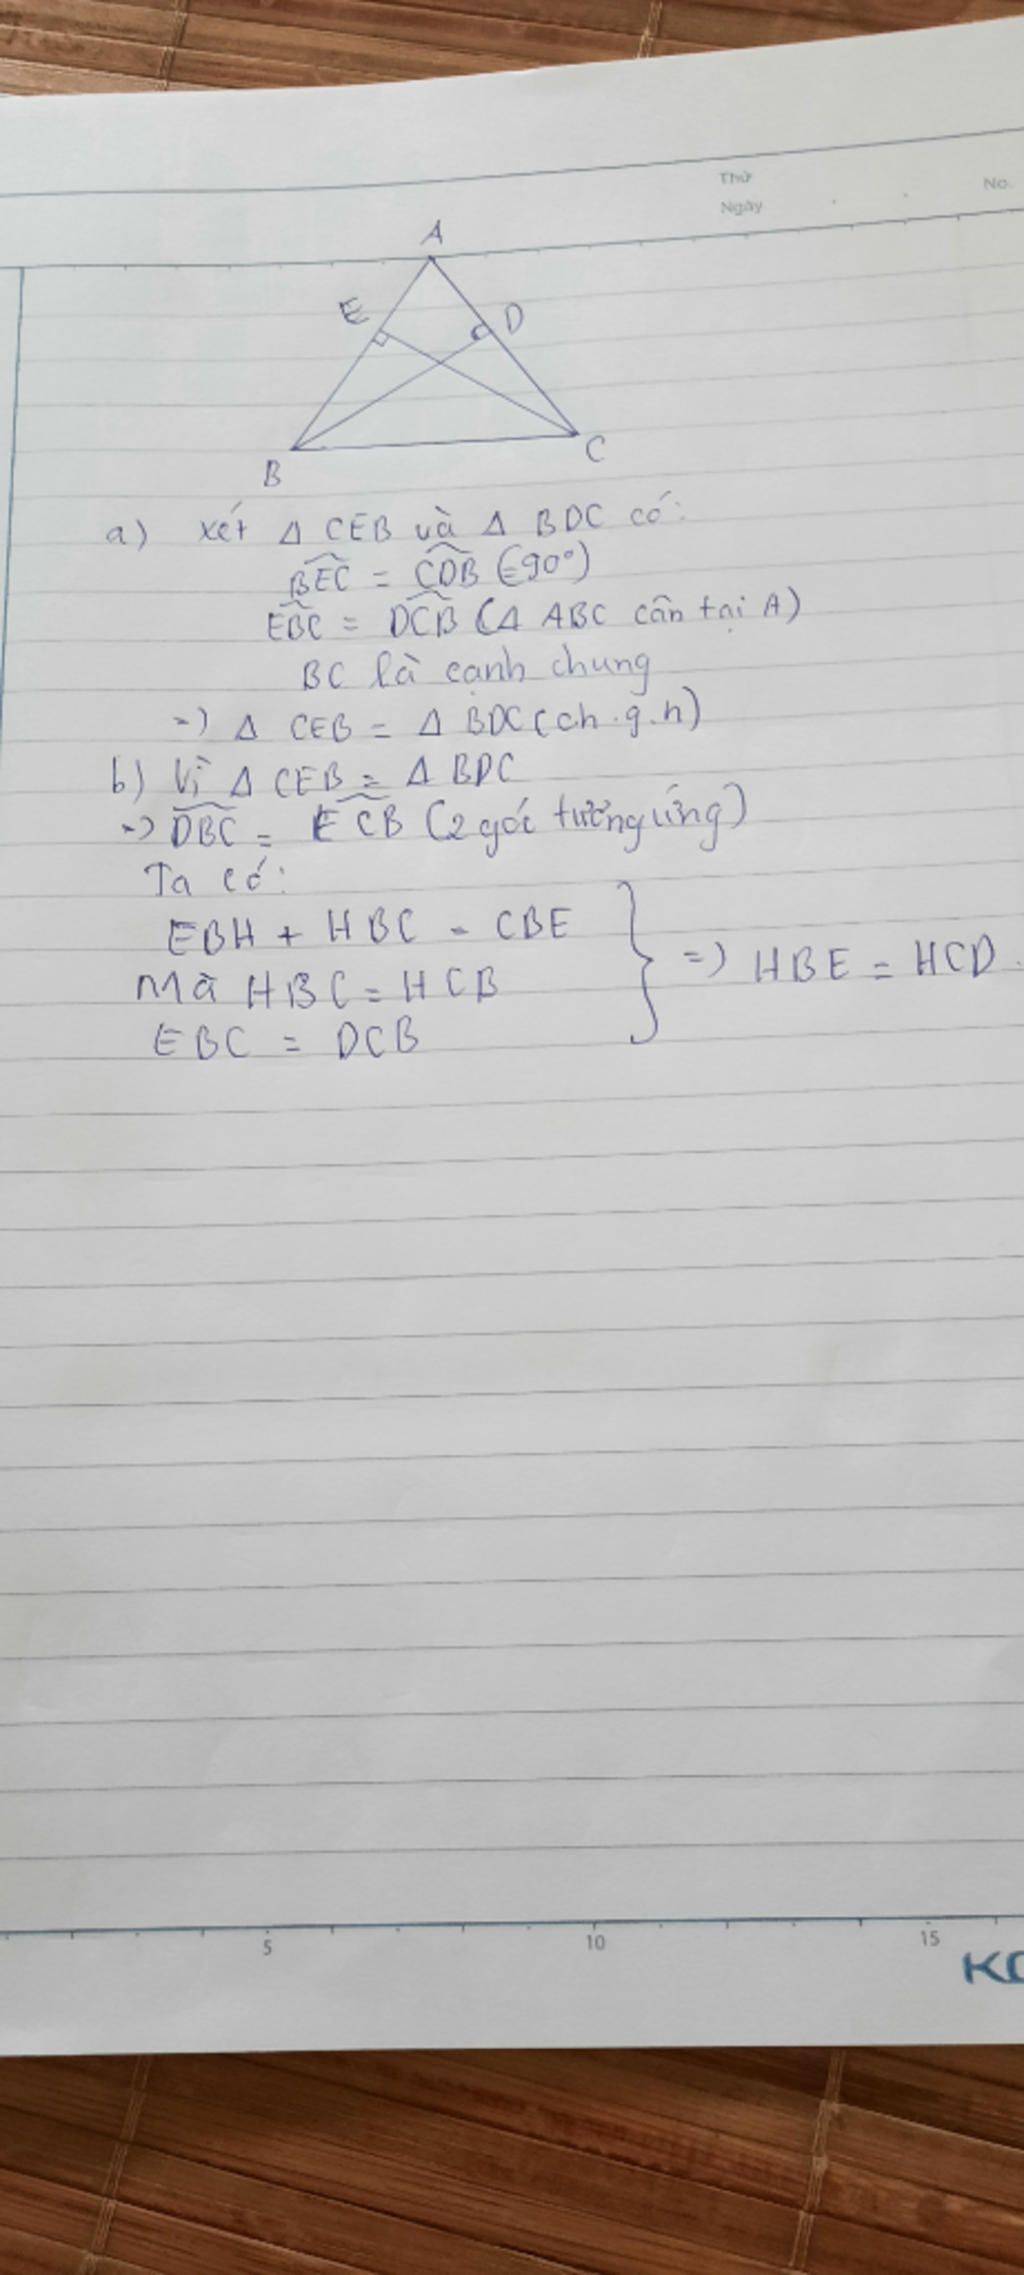 Thứ
Ngày
No.
A
E
D
B
C
a) xét Δ CEB và Δ BDC có:
BEC = CDB (=90°)
EBC = DCB (Δ ABC cân tại A)
BC là cạnh chung
=) Δ CEB = Δ BDC (ch.g.n)
b) Vì Δ CEB = Δ BDC
=) DBC = ECB (2 góc tương ứng)
Ta có:
EBH + HBC = CBE
Mà HBC = HCB
EBC = DCB
=) HBE = HCD.
5
10
15